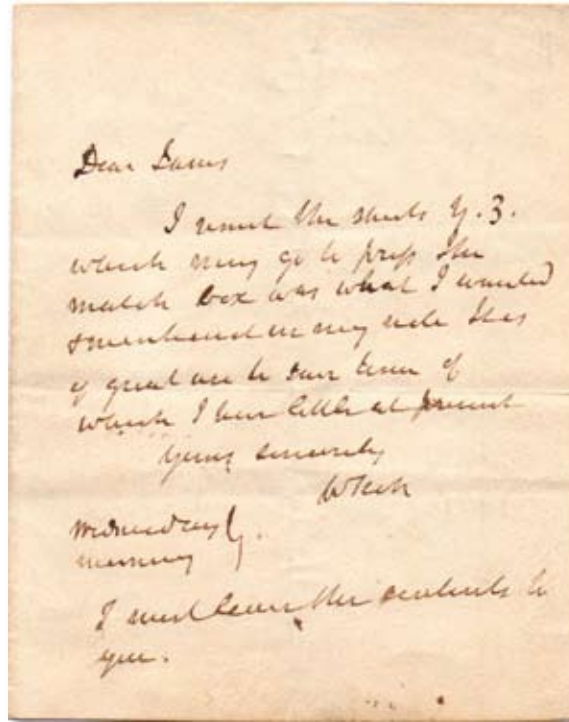 Dear James
I remit the sheets Y. 3.
which may go to press The
match box was what I wanted
& mentiond in my note It is
of great use to save time of
which I have little at present
Yours sincerely
W Scott
Wednesday
morning
I must leave the contents to
you.